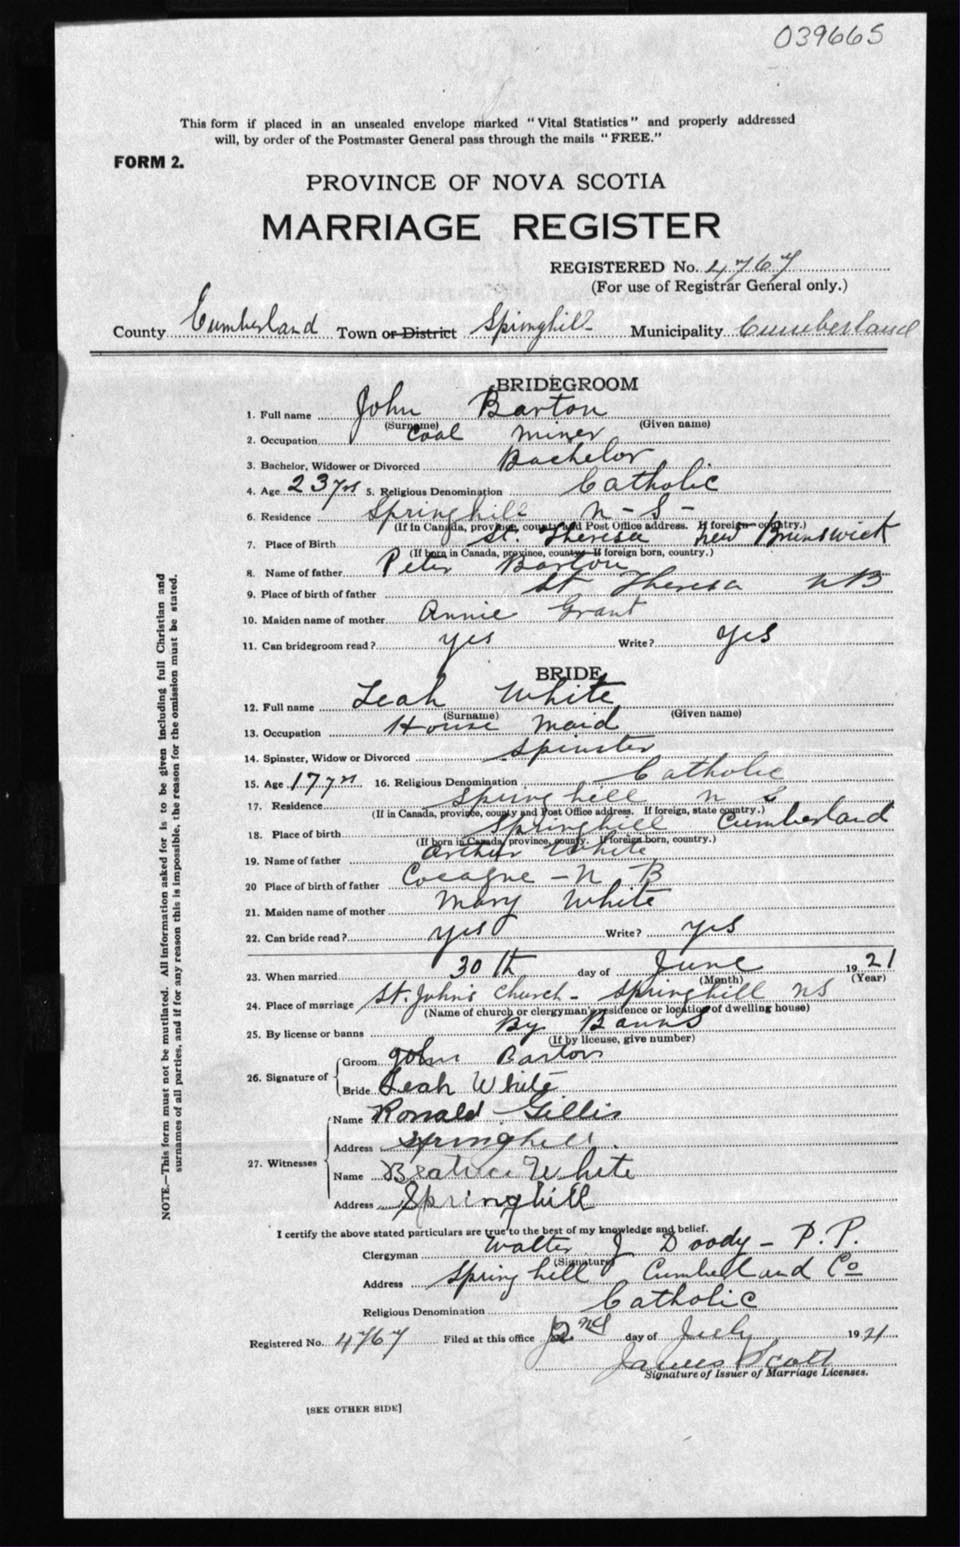 039665
This form if placed in an unsealed envelope marked "Vital Statistics" and properly addressed
will, by order of the Postmaster General pass through the mails "FREE."
FORM 2.
PROVINCE OF NOVA SCOTIA
MARRIAGE REGISTER
REGISTERED No. 4767
(For use of Registrar General only.)
County Cumberland Town or District Springhill Municipality Cumberland
BRIDEGROOM
1. Full name John Barton
(Surname) (Given name)
2. Occupation Coal Miner
3. Bachelor, Widower or Divorced Bachelor
4. Age 23 yrs 5. Religious Denomination Catholic
6. Residence Springhill N-S-
(If in Canada, province, county and Post Office address. If foreign country.)
7. Place of Birth St. Theresa New Brunswick
(If born in Canada, province, county If foreign born, country.)
8. Name of father Peter Barton
9. Place of birth of father St Theresa NB
10. Maiden name of mother Annie Grant
11. Can bridegroom read? yes Write? yes
BRIDE
12. Full name Leah White
(Surname) (Given name)
13. Occupation House Maid
14. Spinster, Widow or Divorced Spinster
15. Age 17 yrs 16. Religious Denomination Catholic
17. Residence Springhill N S
(If in Canada, province, county and Post Office address. If foreign, state country.)
18. Place of birth Springhill Cumberland
(If born in Canada, province, county. If foreign born, country.)
19. Name of father Arthur White
20 Place of birth of father Cocagne - N B
21. Maiden name of mother Mary White
22. Can bride read? yes Write? yes
23. When married 30th day of June 1921
(Month) (Year)
24. Place of marriage St. John's Church - Springhill NS
(Name of church or clergyman's residence or location of dwelling house)
25. By license or banns By Banns
(If by license, give number)
26. Signature of Groom John Barton
Bride Leah White
27. Witnesses Name Ronald Gillis
Address Springhill.
Name Beatrice White
Address Springhill
I certify the above stated particulars are true to the best of my knowledge and belief.
Clergyman Walter J Doody - P.P.
(Signature)
Address Springhill Cumberland Co
Religious Denomination Catholic
Registered No. 4767 Filed at this office 2nd day of July 1921
James Scott
Signature of Issuer of Marriage Licenses.
[SEE OTHER SIDE]
NOTE.—This form must not be mutilated. All information asked for is to be given including full Christian and
surnames of all parties, and if for any reason this is impossible, the reason for the omission must be stated.